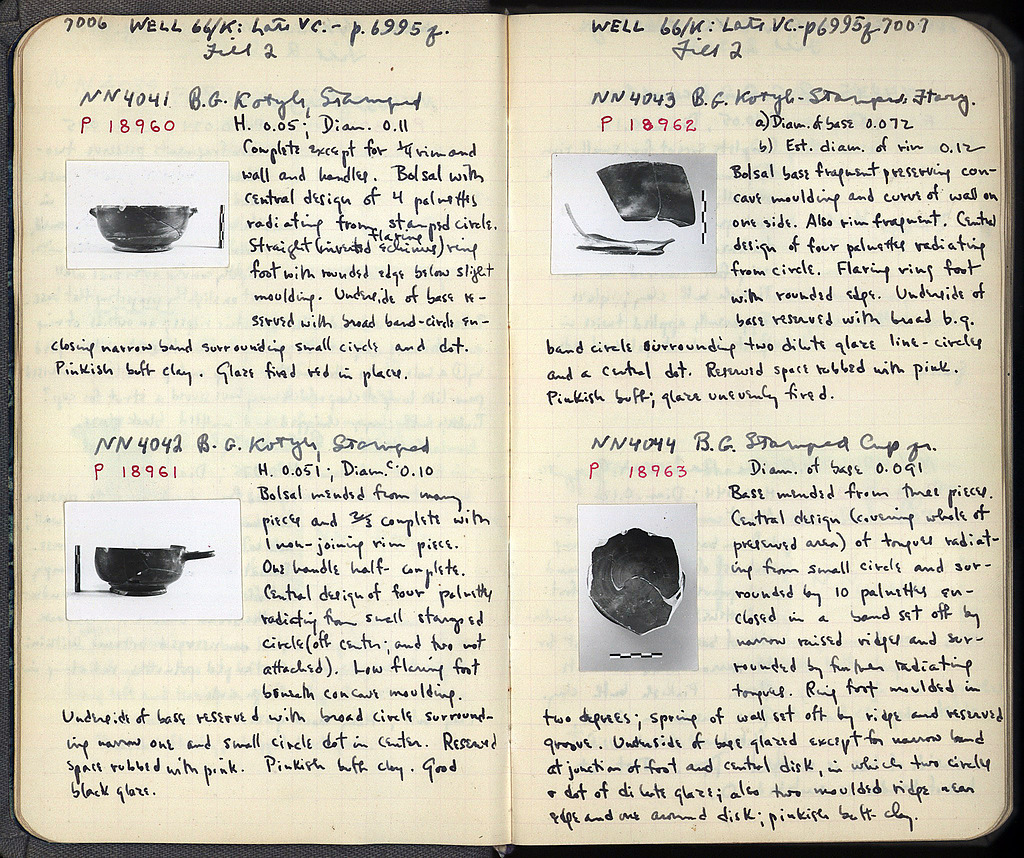 7006 WELL 66/K: Late VC.- p. 6995f.
Fill 2
NN4041 B.G. Kotyle, Stamped
P 18960 H. 0.05; Diam. 0.11
Complete except for ¼ rim and
wall and handles. Bolsal with
central design of 4 palmettes
radiating from stamped circle.
Flaring
Straight (inverted echinus) ring
foot with rounded edge below slight
moulding. Underside of base re-
served with broad band-circle en-
closing narrow band surrounding small circle and dot.
Pinkish buff clay. Glaze fired red in places.
NN4042 B.G. Kotyle, Stamped
P 18961 H. 0.051; Diam. c. 0.10
Bolsal mended from many
pieces and 2/3 complete with
1 non-joining rim piece.
One handle half-complete.
Central design of four palmettes
radiating from small stamped
circle (off center; and two not
attached). Low flaring foot
beneath concave moulding.
Underside of base reserved with broad circle surround-
ing narrow one and small circle dot in center. Reserved
space rubbed with pink. Pinkish buff clay. Good
black glaze.
WELL 66/K: Late VC.-p6995f 7007
Fill 2
NN4043 B.G. Kotyle-Stamped: Frag.
P 18962 a) Diam. of base 0.072
b) Est. diam. of rim 0.12
Bolsal base fragment preserving con-
cave moulding and curve of wall on
one side. Also rim fragment. Central
design of four palmettes radiating
from circle. Flaring ring foot
with rounded edge. Underside of
base reserved with broad b.g.
band circle surrounding two dilute glaze line-circles
and a central dot. Reserved space rubbed with pink.
Pinkish buff; glaze unevenly fired.
NN4044 B.G. Stamped Cup fr.
P 18963 Diam. of base 0.091
Base mended from three pieces.
Central design (covering whole of
preserved area) of tongues radiat-
ing from small circle and sur-
rounded by 10 palmettes en-
closed in a band set off by
narrow raised ridges and sur-
rounded by further radiating
tongues. Ring foot moulded in
two degrees; spring of wall set off by ridge and reserved
groove. Underside of base glazed except for narrow band
at junction of foot and central disk, in which two circles
& dot of dilute glaze; also two moulded ridge near
edge and one around disk; pinkish buff clay.